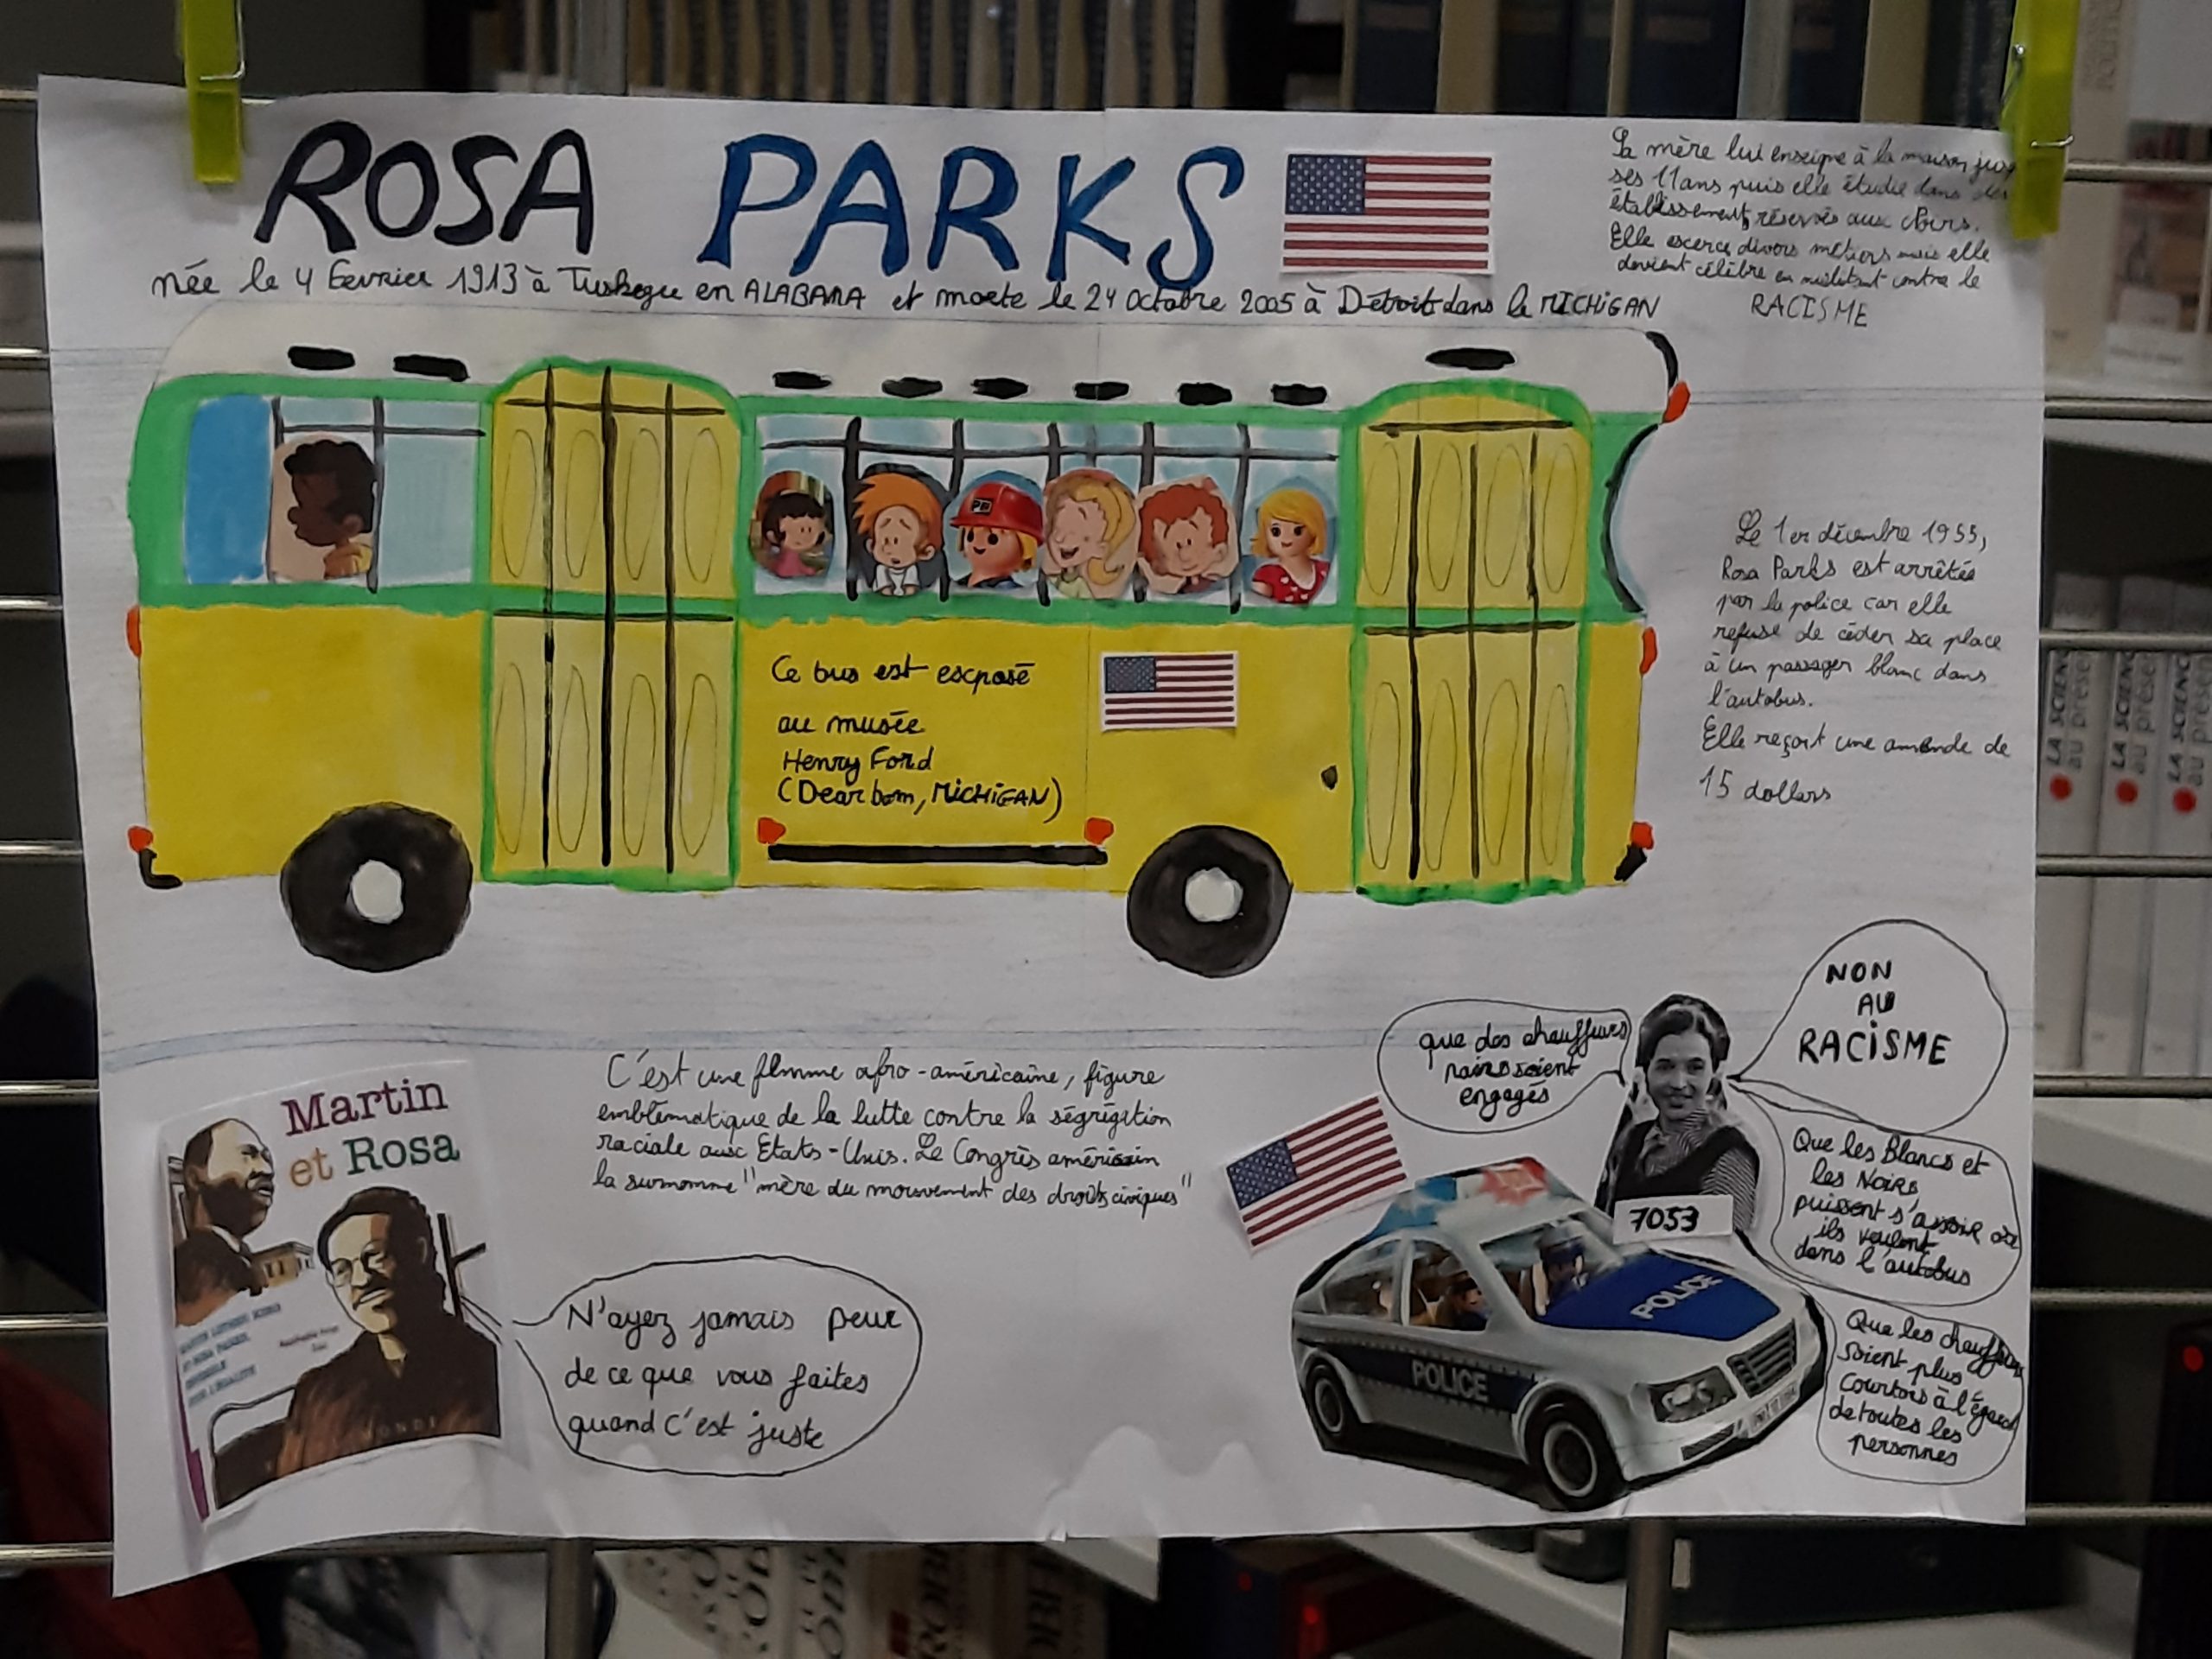 ROSA PARKS
née le 4 Fevrier 1913 à Tuskegee en ALABAMA et morte le 24 octobre 2005 à Détroit dans le MICHIGAN
Sa mère lui enseigne à la maison
ses 11 ans puis elle étudie dans des
établissements réservés aux Noirs.
Elle escerce divers métiers mais elle
devient célèbre en militant contre le
RACISME
Le 1er décembre 1955,
Rosa Parks est arrêtée
par la police car elle
refuse de céder sa place
à un passager blanc dans
l'autobus.
Elle reçoit une amende de
15 dollars
Ce bus est escposé
au musée
Henry Ford
(Dearborn, MICHIGAN)
C'est une femme afro-américaine, figure
emblématique de la lutte contre la ségrégation
raciale ausc Etats-Unis. Le Congrès américain
la surnomme "mère du mouvement des droits civiques"
Martin
et Rosa
N'ayez jamais peur
de ce que vous faites
quand c'est juste
que des chauffeurs
noirs soient
engagés
NON
AU
RACISME
Que les Blancs et
les Noirs
puissent s'assoir où
ils veulent
dans l'autobus
Que les chauffeurs
soient plus
courtois à l'égard
de toutes les
personnes
7053
POLICE
POLICE
LA SCIENC
au présen
LA SCIENC
au présen
LA SCIENC
au prése